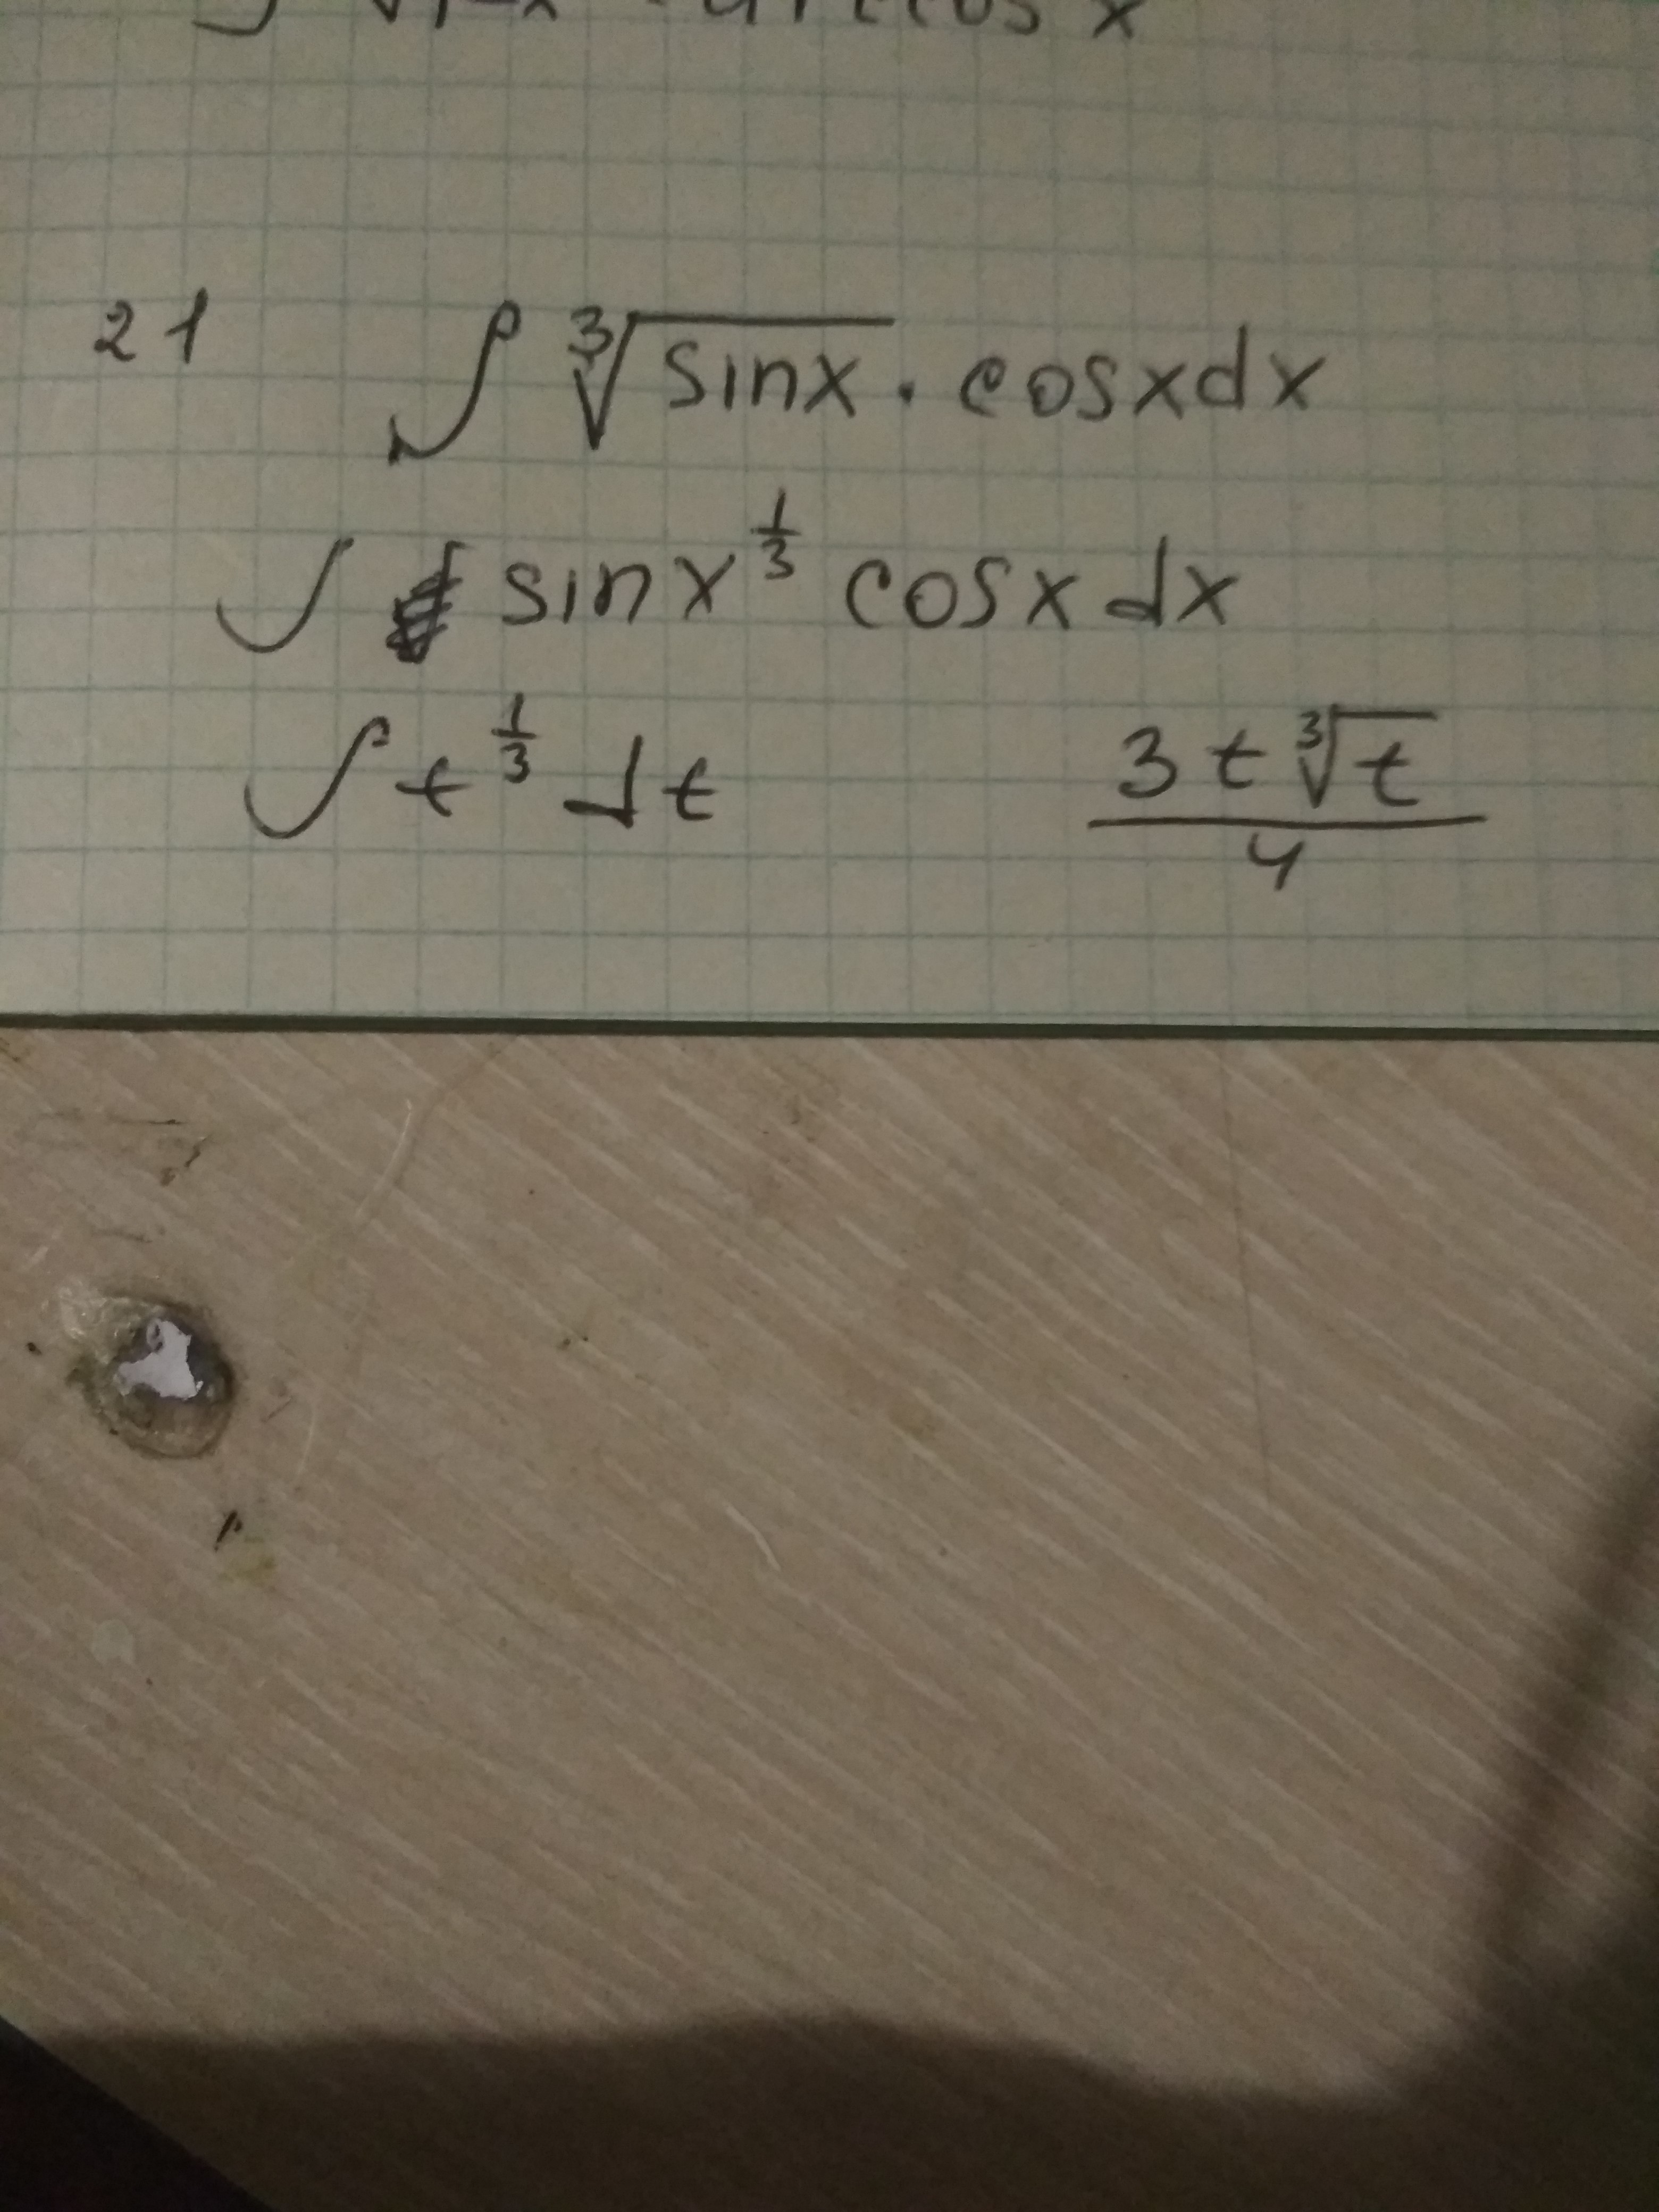 x
21 ∫ ∛sinx · cosxdx
∫ sinx^(1/3) cosx dx
∫ t^(1/3) dt 3t∛t/4